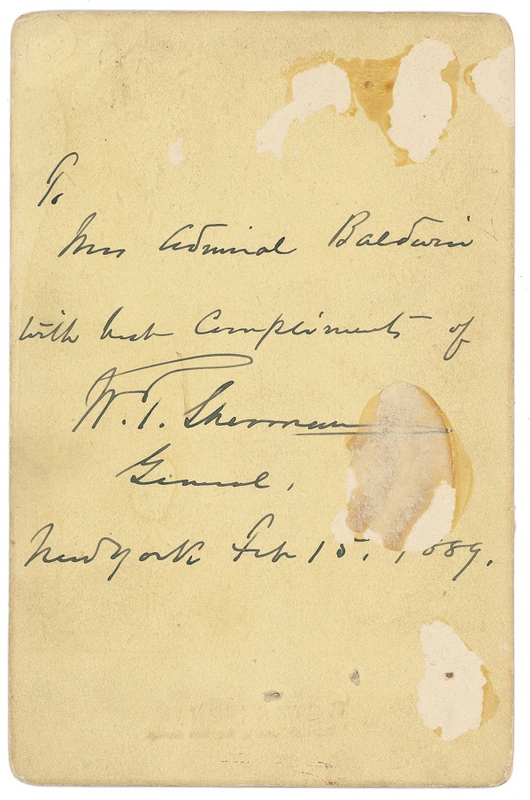 To
Mrs Admiral Baldwin
with best Compliments of
W. T. Sherman
General.
New York Feb 15, 1889.